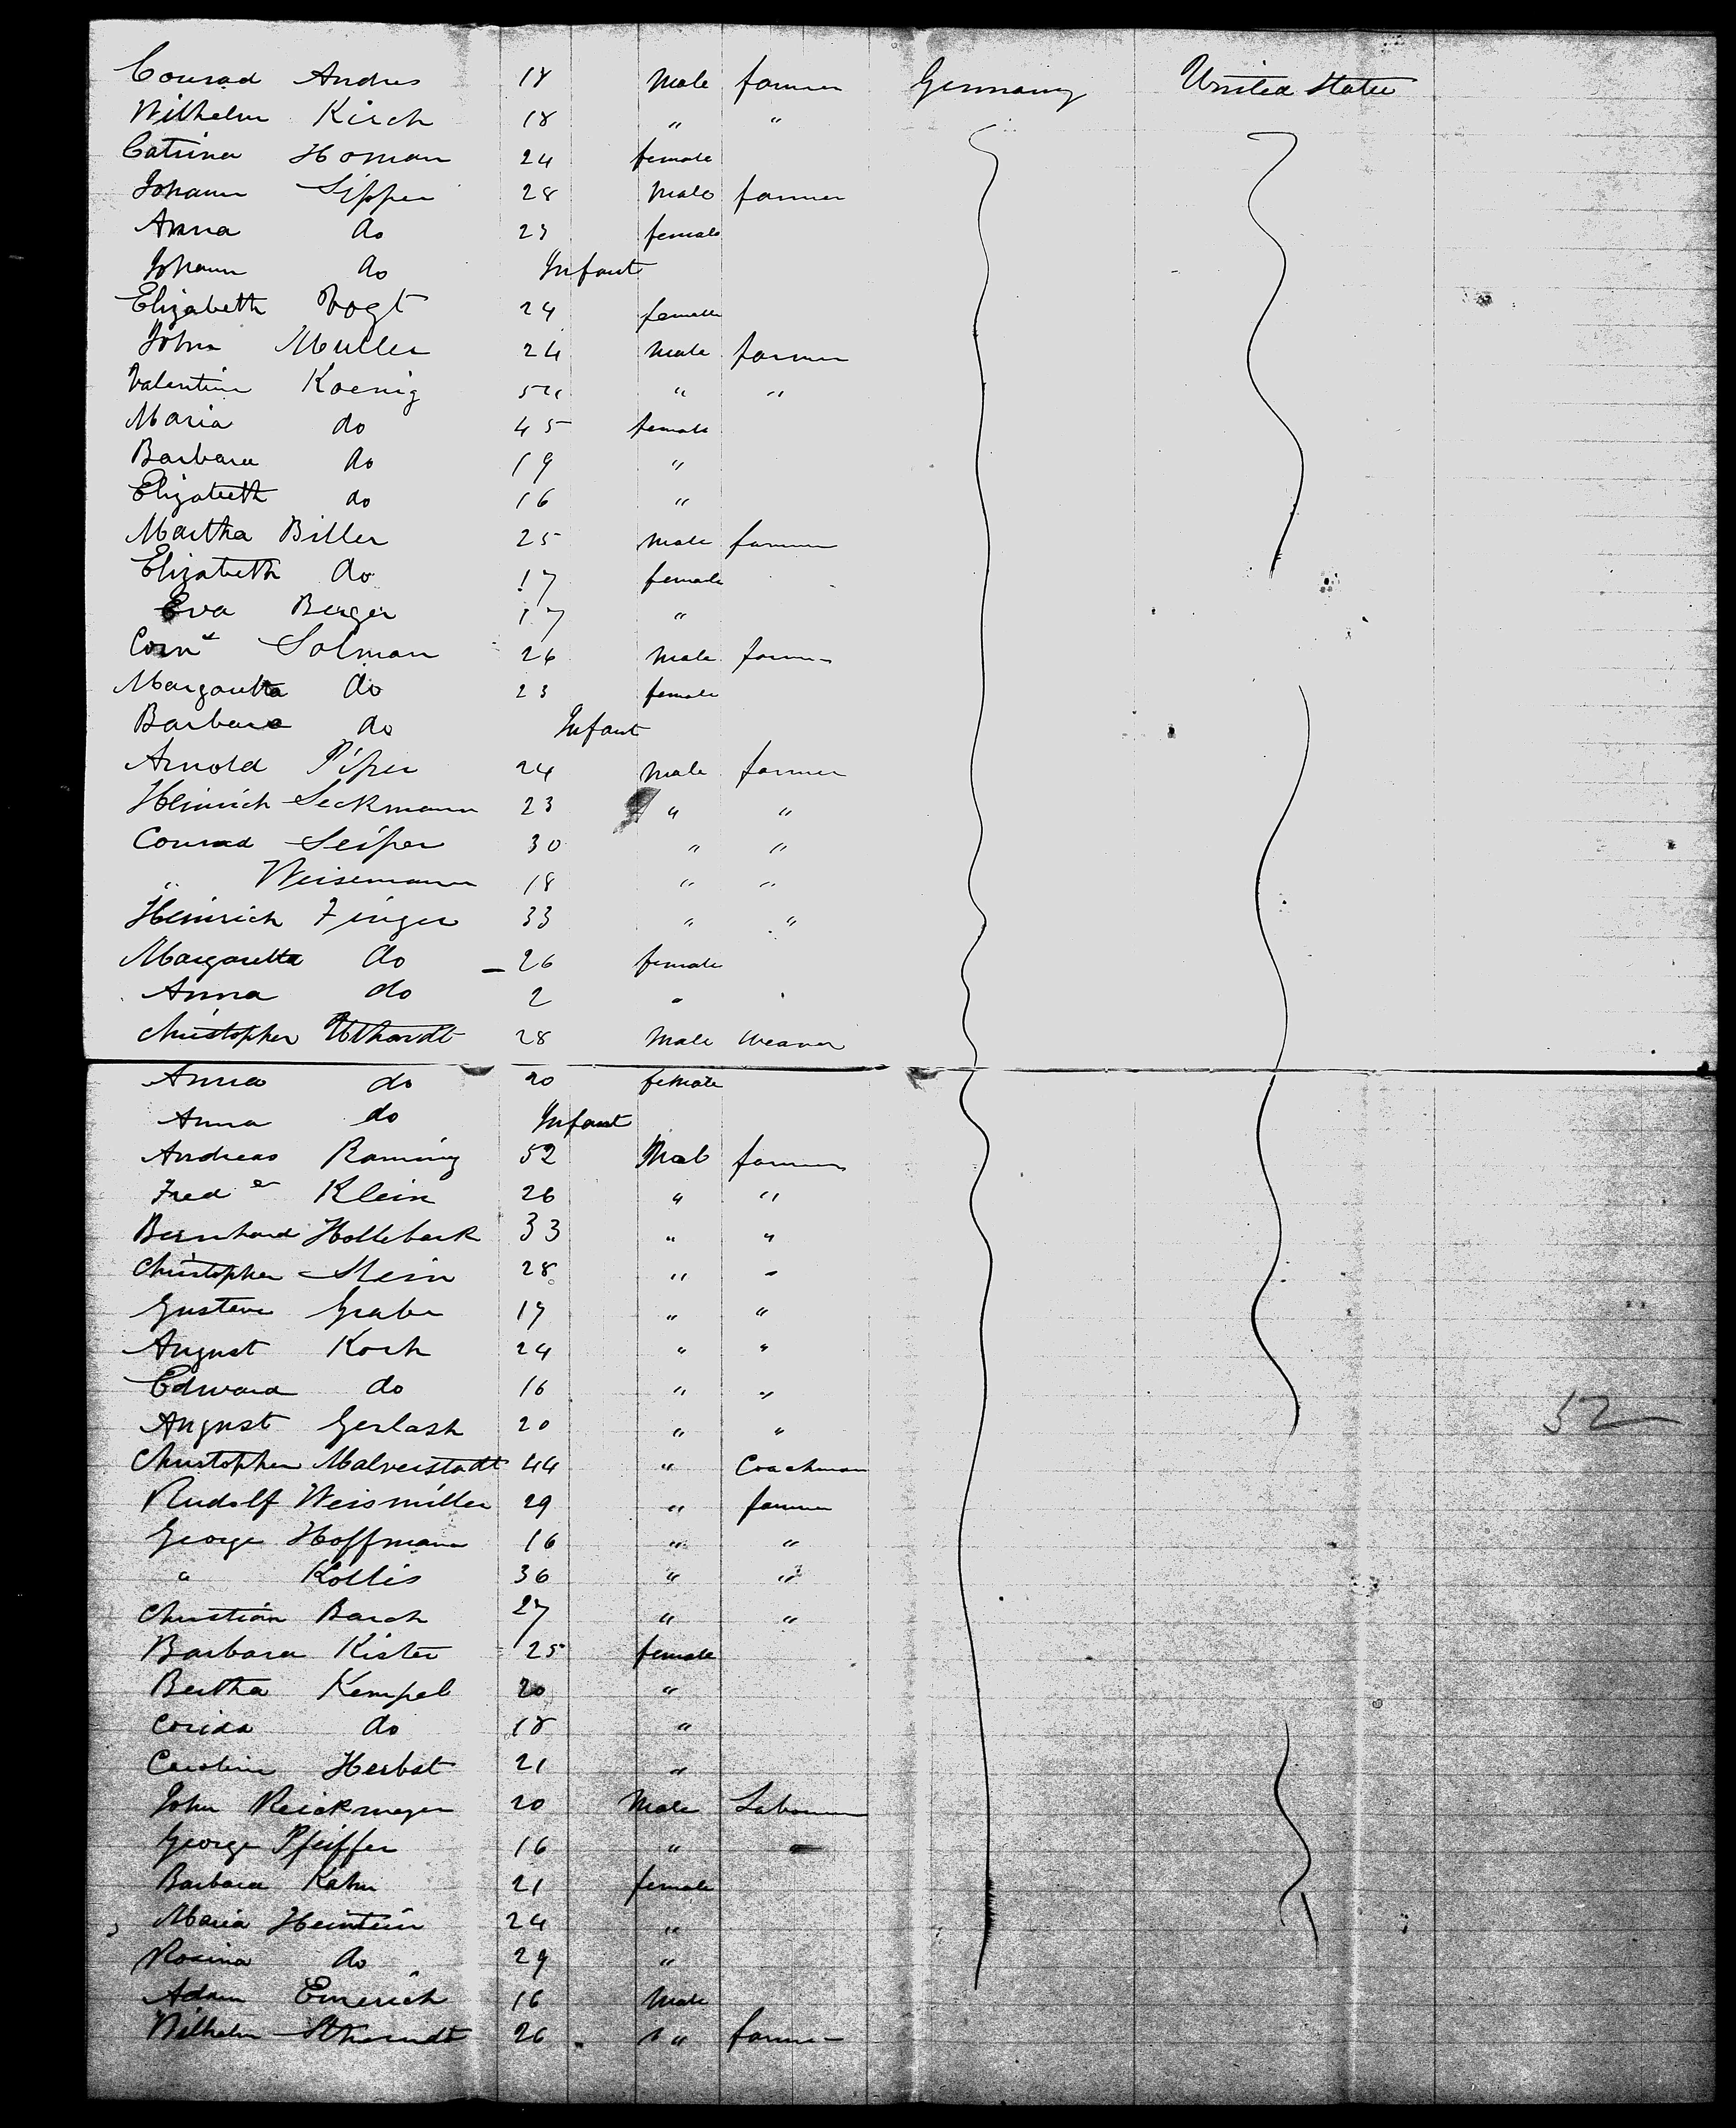 Conrad Andres 18 Male farmer Germany United States
Wilhelm Kirch 18 " "
Catrina Homan 24 female
Johann Sipper 28 Male farmer
Anna do 23 female
Johann do Infant
Elizabeth Vogt 24 female
John Muller 24 Male farmer
Valentine Koenig 54 " "
Maria do 45 female
Barbara do 19 "
Elizabeth do 16 "
Martha Biller 25 Male farmer
Elizabeth do 17 female
Eva Berger 17 "
Corn^d Solman 26 Male farmer
Margaretta do 23 female
Barbara do Infant
Arnold Piper 24 Male farmer
Heinrich Seckmann 23 " "
Conrad Seiper 30 " "
" Weisemann 18 " "
Heinrich Finger 33 " "
Margaretta do 26 female
Anna do 2 "
Christopher 28 Male Weaver
Anna do 20 female
Anna do Infant
Andreas Raming 52 Male farmer
Fred^er Klein 26 " "
Bernhard Hollebark 33 " "
Christopher Stein 28 " "
Gustave Grabe 17 " "
August Koch 24 " "
Edward do 16 " "
August Gerlash 20 " "
Christopher Malverstadt 44 " Coachman
Rudolf Weismiller 29 " farmer
George Hoffmann 16 " "
" Kollis 36 " "
Christian Barch 27 " "
Barbara Kister 25 female
Bertha Kempel 20 "
Corida do 18 "
Caroline Herbst 21 "
John Reickmeyer 20 Male Labourer
George Pfeiffer 16 " "
Barbara Kahn 21 female
Maria Heintein 24 "
Rosina do 29 "
Adam Emerich 16 Male
Wilhelm 26 " farmer
52